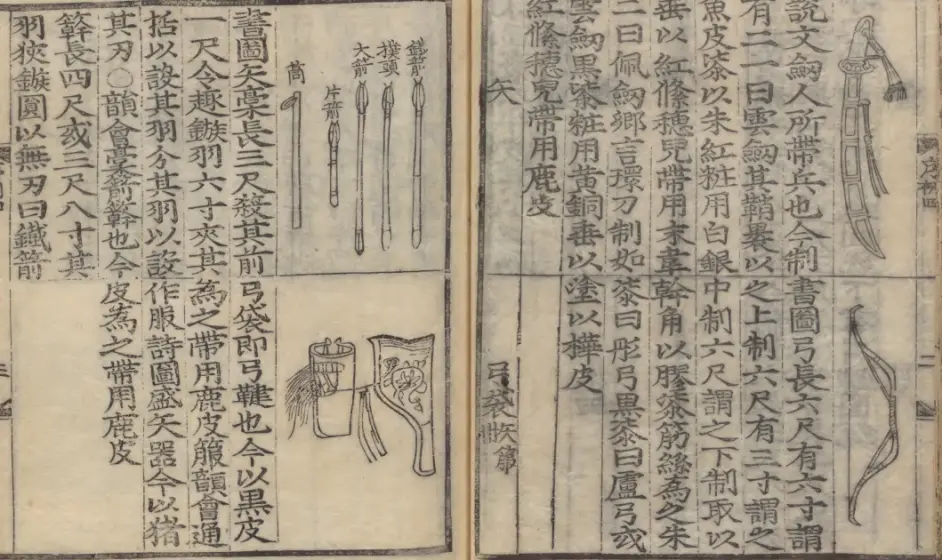 序例四
二
說文劒人所帶兵也今制
有二一曰雲劒其鞘裹以
魚皮柒以朱紅粧用白銀
垂以紅絛穗兒帶用末韋
二曰佩劒鄉言環刀制如
雲劒黑柒粧用黃銅垂以
紅絛穗兒帶用鹿皮
書圖弓長六尺有六寸謂
之上制六尺有三寸謂之
中制六尺謂之下制取以
幹角以膠柒筋絲為之朱
柒曰彤弓黑柒曰盧弓或
塗以樺皮
矢
弓袋
鐵箭
樸頭
大箭
片箭
筒
書圖矢稾長三尺殺其前
一尺令趣鏃羽六寸夾其
括以設其羽分其羽以設
其刃○韻會稾箭簳也今
簳長四尺或三尺八寸其
羽狹鏃圓以無刃曰鐵箭
弓袋即弓鞬也今以黑皮
為之帶用鹿皮箙韻會通
作服詩圖盛矢器今以猪
皮為之帶用鹿皮
三